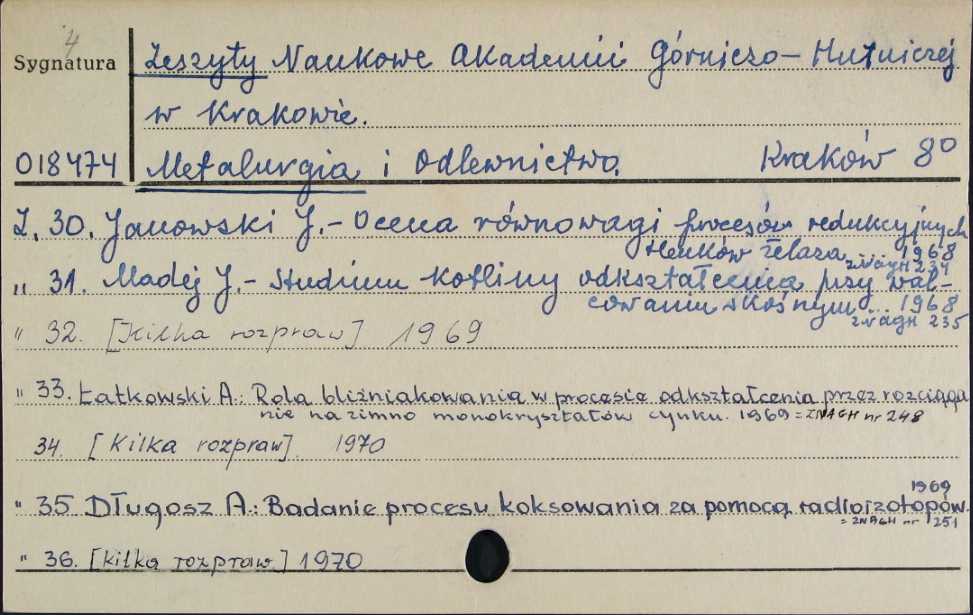 4
Sygnatura
Zeszyty Naukowe Akademii Górniczo-Hutniczej
w Krakowie.
018474 Metalurgia i Odlewnictwo. Kraków 8°
Z. 30. Janowski J.- Ocena równowagi procesów redukcyjnych
tlenków żelaza 1968
ZNAGH 234
" 31. Madej J.- Studium kotliny odkształcenia przy wal-
cowaniu skośnym... 1968
ZNAGH 235
" 32. [Kilka rozpraw] 1969
" 33. Łatkowski A.: Rola bliźniakowania w procesie odkształcenia przez rozciąga
nie na zimno monokryształów cynku. 1969 = ZNAGH nr 248
34. [Kilka rozpraw]. 1970
" 35 Długosz A.: Badanie procesu koksowania za pomocą radioizotopów. 1969
= ZNAGH nr 251
" 36. [Kilka rozpraw] 1970